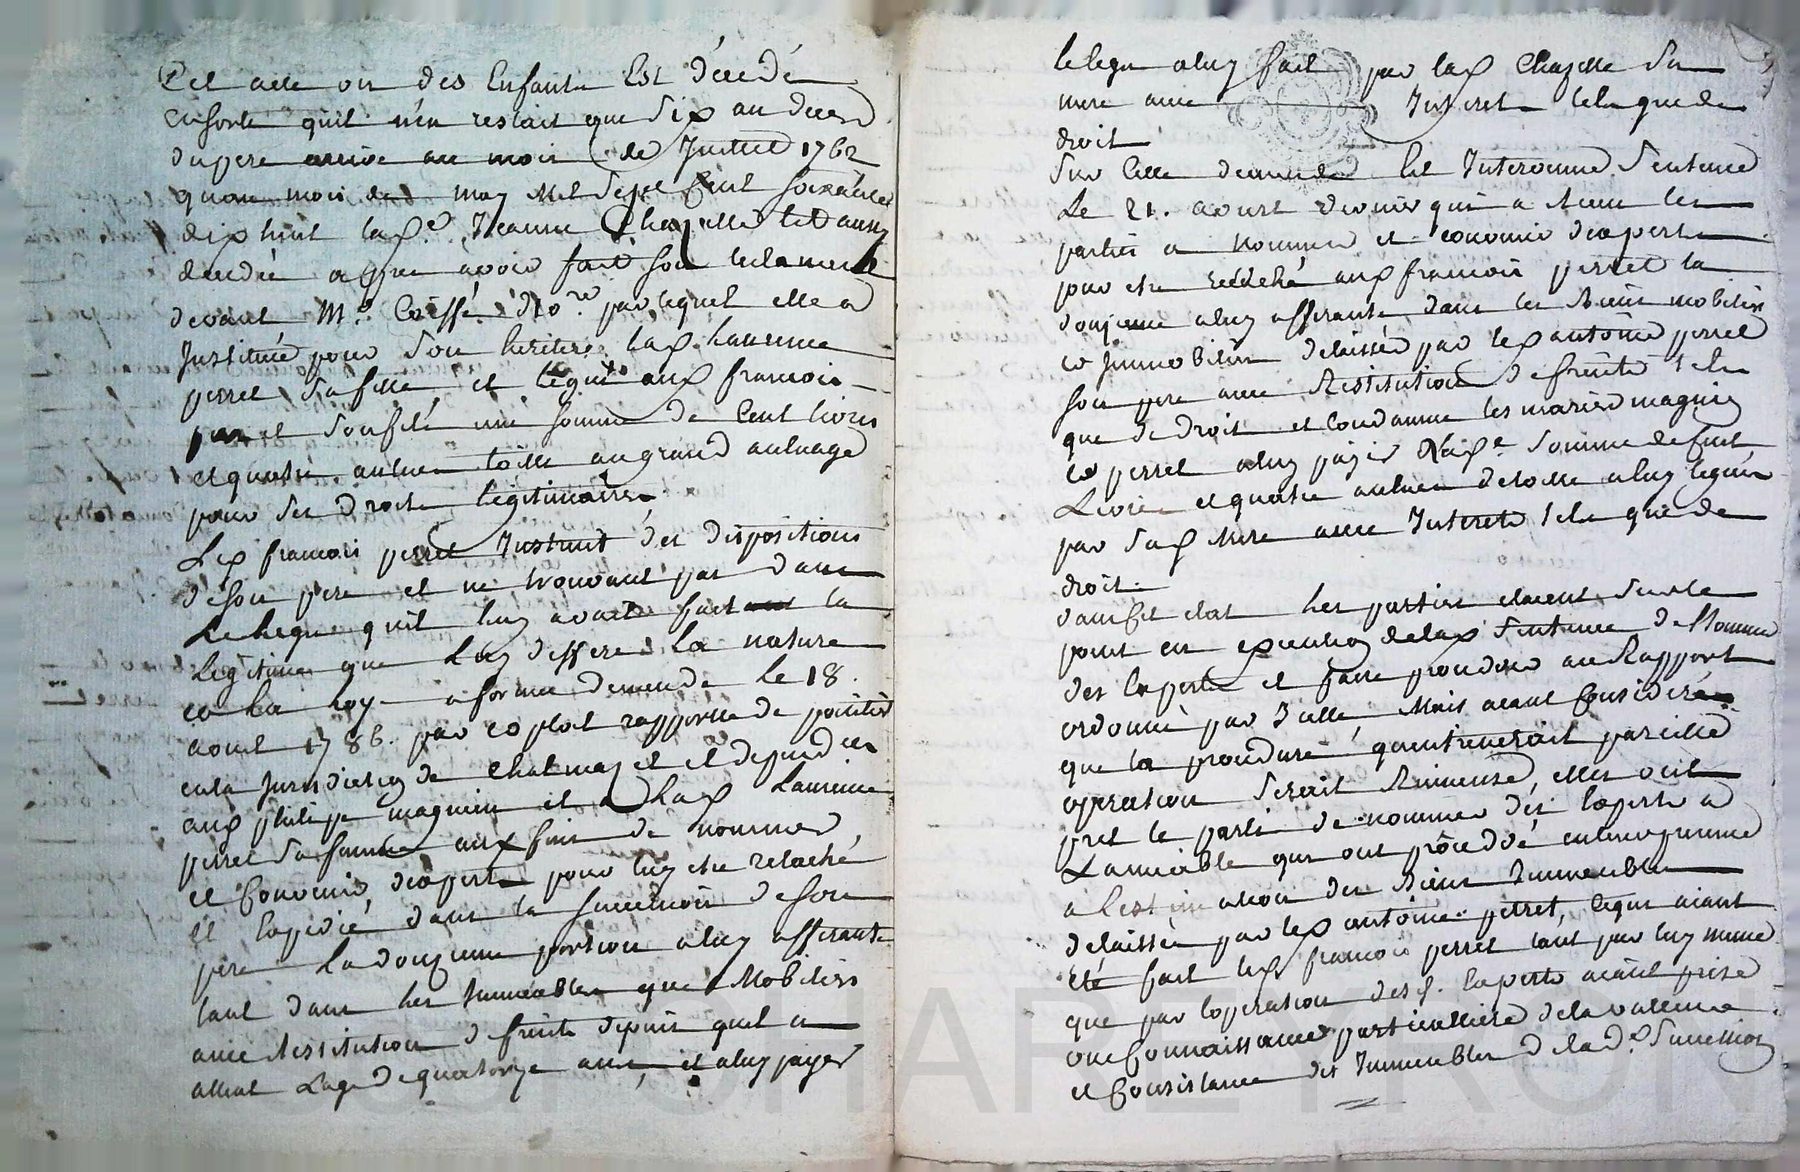 Cet acte un des Enfants Est décédé
Ensorte quil n'en restait que Six au deces
du pere arrivé au mois de Juillet 1762
quau mois de may Mil Sept Cent soixante
dix huit lad.e Jeanne Chazelle Est aussy
decedée apres avoir fait son testament
devant M.e Coiffé No.re par lequel elle a
Institué pour Son heritiere lad. Laurence
perret Sa fille et legué aud francois
perret Son fils une somme de Cent livres
et quatre aulnes toille au grand aulnage
pour Ses droits legitimaires
Led francois perret Instruit des dispositions
de son pere et ne trouvant pas dans
Le legue quil luy avait fait la
legitime que Luy deffere La nature
et La loy a formé demande Le 18.
aout 1786. par exploit rapporté de
en la Jurisdiction de Chalmazel et dependces
aud philipe magnien et a lad Laurence
perret Sa femme aux fins de nommer
et Convenir dexperts pour luy etre relaché
et Expedié dans la succession de son
pere La douzieme portion a luy afferante
tant dans les Immeubles que Mobiliers
avec Restitution de fruits depuis quil a
atteint Lage de quatorze ans, et a luy payer
le legue a luy fait par lad Chazelle Sa
mere avec Interets tels que de
droit
Sur Cette demande Est Intervenue Sentence
Le 21. aoust dernier qui a
parties a nommer et convenir dexperts
pour etre relaché aud francois perret la
douzieme a luy afferante dans les Biens mobiliers
et Immobiliers delaissés par led antoine perret
son pere avec Restitution de fruits tels
que de droit et Condamne les mariés magnien
et perret a luy payer la somme de Cent
Livres et quatre aulnes de toille a luy legués
par Sad Mere avec Interets tels que de
droit.
dans Cet etat les parties etaient Sur le
point en execution de lad Sentence de Nommer
des Experts et faire proceder au Rapport
ordonné par Icelle Mais ayant Consideré
que la procedure quentrenerait pareille
operation Serait Ruineuse, elles ont
pris le parti de nommer des Experts a
Lamiable qui ont procedé
a lestimation des Biens Immeubles
delaissés par led antoine perret, lequi aiant
été fait led francois perret tant par luy meme
que par loperation desd. Experts aiant prise
une Connaissance particulliere de la valleur
et Consistance des Immeubles de lad.e Succession